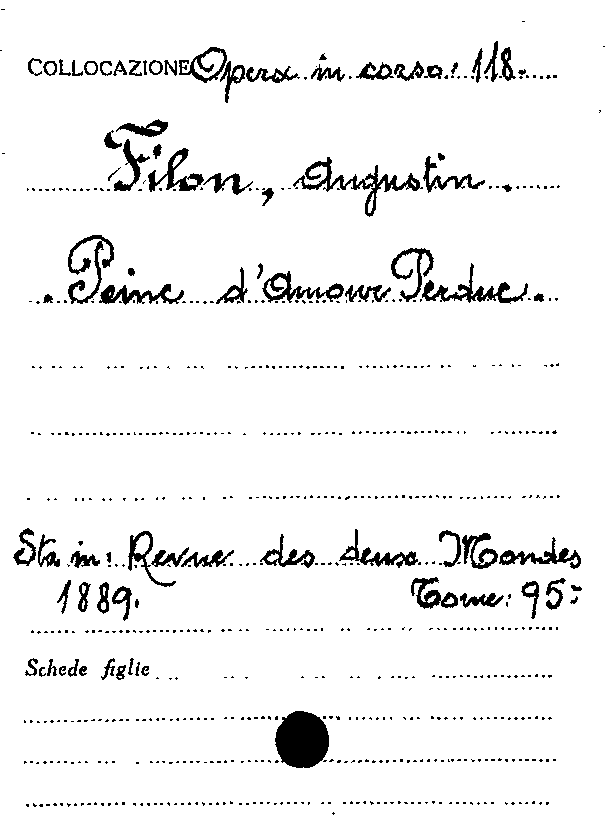 COLLOCAZIONE Opera in corso: 118.
Filon, Augustin.
Peine d'Amour Perdue.
Sta in: Revue des deux Mondes
1889. Tome: 95=
Schede figlie